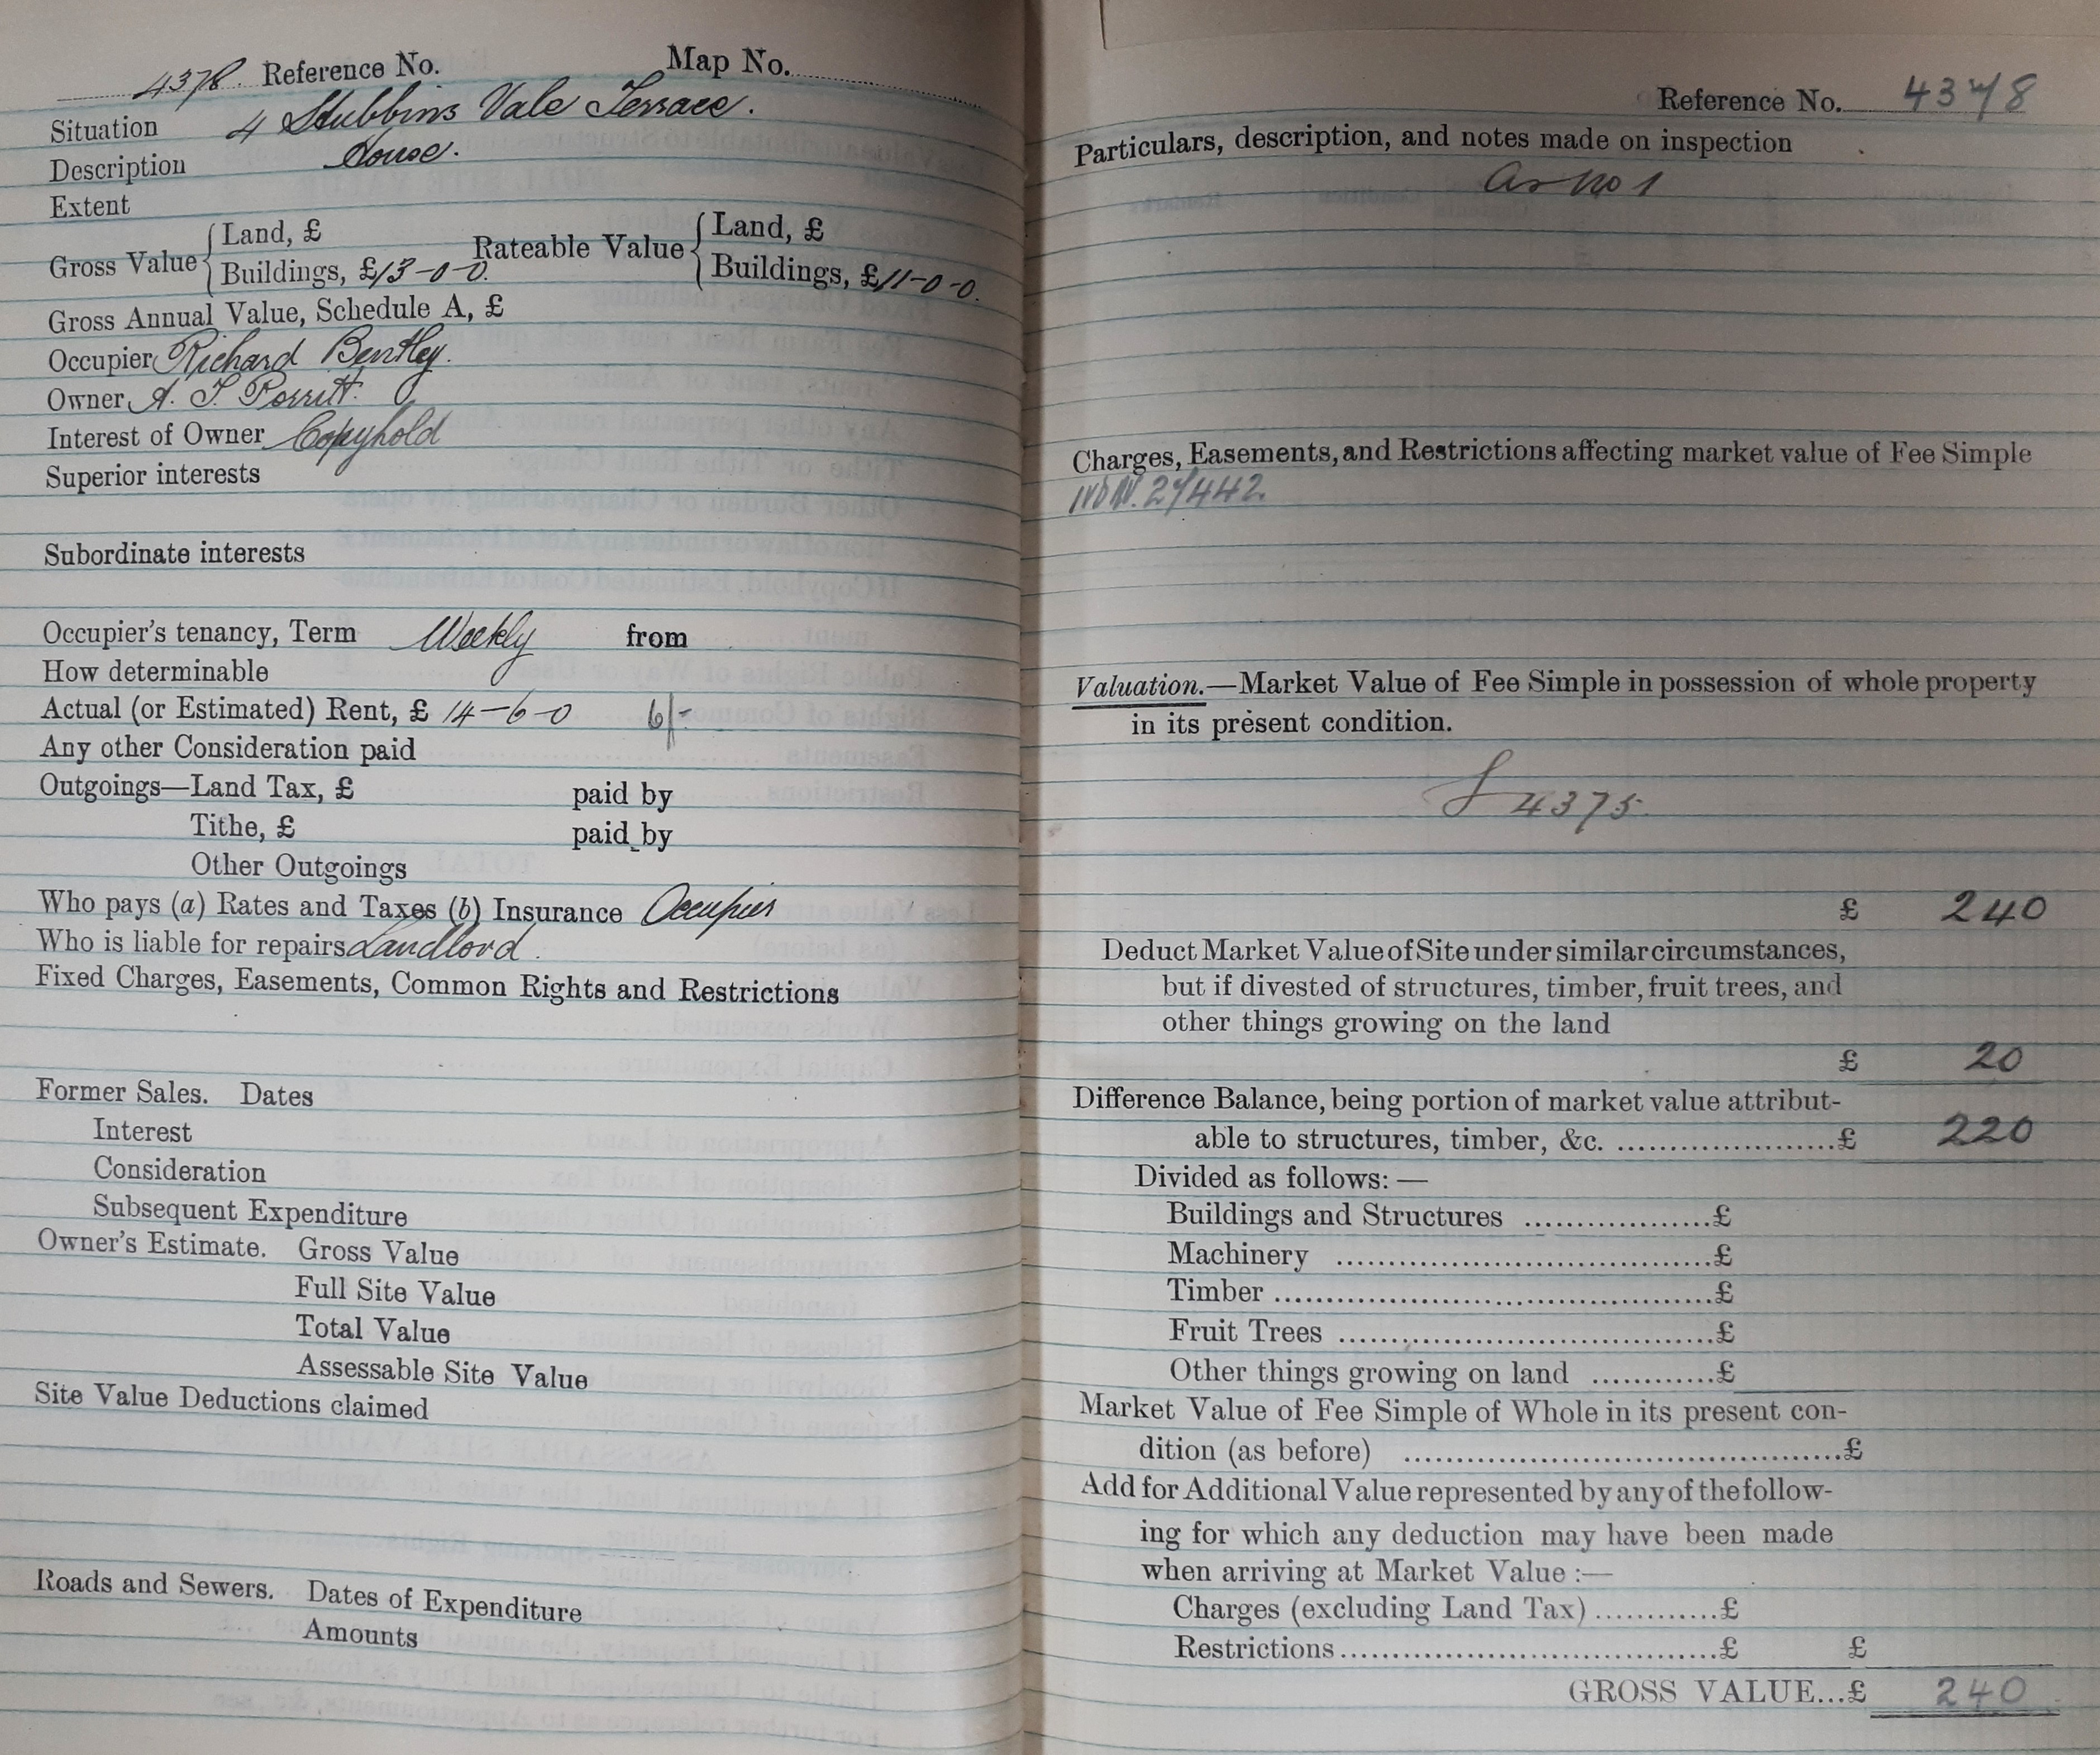 4378 Reference No. Map No.
Situation 4 Stubbins Vale Terrace.
Description House.
Extent
Gross Value { Land, £ Rateable Value { Land, £
Buildings, £13-0-0. Buildings, £11-0-0.
Gross Annual Value, Schedule A, £
Occupier Richard Bentley.
Owner A. T. Porritt.
Interest of Owner Copyhold
Superior interests
Subordinate interests
Occupier's tenancy, Term Weekly from
How determinable
Actual (or Estimated) Rent, £ 14-6-0 6/-
Any other Consideration paid
Outgoings—Land Tax, £ paid by
Tithe, £ paid by
Other Outgoings
Who pays (a) Rates and Taxes (b) Insurance Occupier
Who is liable for repairs Landlord.
Fixed Charges, Easements, Common Rights and Restrictions
Former Sales. Dates
Interest
Consideration
Subsequent Expenditure
Owner's Estimate. Gross Value
Full Site Value
Total Value
Assessable Site Value
Site Value Deductions claimed
Roads and Sewers. Dates of Expenditure
Amounts
Reference No. 4378
Particulars, description, and notes made on inspection
as no 1
Charges, Easements, and Restrictions affecting market value of Fee Simple
27442
Valuation.—Market Value of Fee Simple in possession of whole property
in its present condition.
£ 4375
£ 240
Deduct Market Value of Site under similar circumstances,
but if divested of structures, timber, fruit trees, and
other things growing on the land
£ 20
Difference Balance, being portion of market value attribut-
able to structures, timber, &c. ......................£ 220
Divided as follows:—
Buildings and Structures ...................£
Machinery ......................................£
Timber ............................................£
Fruit Trees ......................................£
Other things growing on land ............£
Market Value of Fee Simple of Whole in its present con-
dition (as before) ............................................£
Add for Additional Value represented by any of the follow-
ing for which any deduction may have been made
when arriving at Market Value :—
Charges (excluding Land Tax) ............£
Restrictions ......................................£ £
GROSS VALUE...£ 240